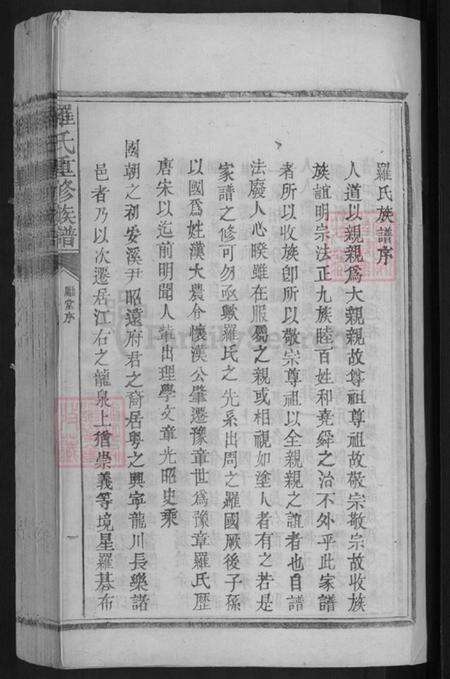 羅氏族譜序
人道以親親爲大親親故尊祖尊祖故敬宗敬宗故收族
族誼明宗法正九族睦百姓和堯舜之治不外乎此家譜
者所以收族卽所以敬宗尊祖以全親親之誼者也自譜
法廢人心睽雖在服屬之親或相視如塗人者有之若是
家譜之修可勿亟歟羅氏之先系出周之羅國厥後子孫
以國爲姓漢大農令懷漢公肇遷豫章世爲豫章羅氏歷
唐宋以迄前明聞人輩出理學文章光昭史乘
國朝之初安溪尹昭遠府君之裔居粵之興寧龍川長樂諸
邑者乃以次遷居江右之龍泉上猶崇義等境星羅棊布
羅氏重修族譜
序